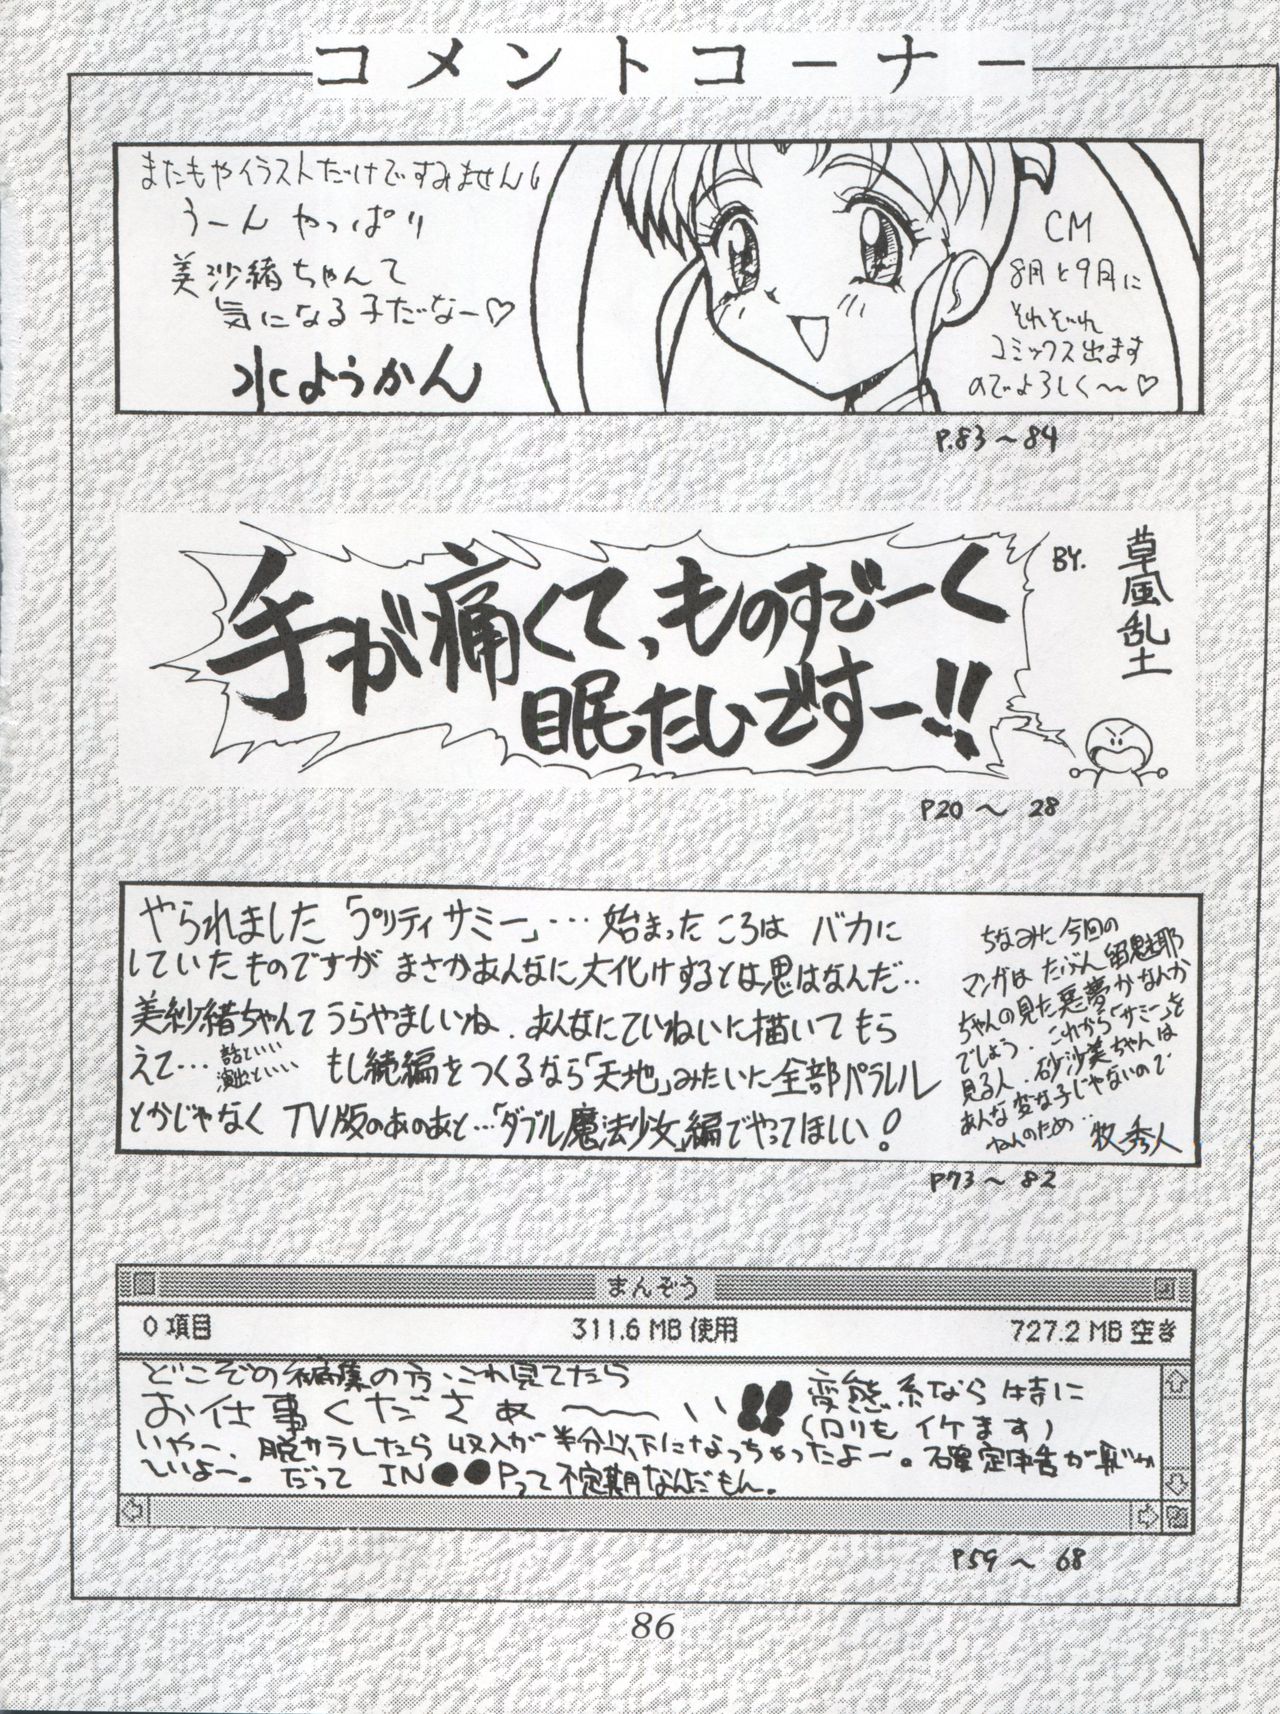 コメントコーナー
またもやイラストだけですみません
うーん やっぱり
美沙緒ちゃんて
気になる子だなー♡
水ようかん
CM
8月と9月に
それぞれ
コミックス出ます
のでよろしく〜〜♡
P.83〜84
手が痛くて、ものすごーく
眠たいですー!!
BY.
草風乱土
P20〜28
やられました「プリティサミー」…始まったころは バカに
していたものですが まさかあんなに大化けするとは思はなんだ..
美紗緒ちゃんてうらやましいね.あんなにていねいに描いてもら
えて… 話といい
演出といい
もし続編をつくるなら「天地」みたいた全部パラレル
とかじゃなく TV版のあのあと…「ダブル魔法少女」編でやってほしい!
ちなみに今回の
マンガは たぶん 留魅耶
ちゃんの見た悪夢かなんか
でしょう.これから「サミー」を
見る人.砂沙美ちゃんは
あんな変な子じゃないので
ねんのため..
牧秀人
P73〜82
まんぞう
0 項目
311.6 MB 使用
727.2 MB 空き
どこぞの編集の方、これ見てたら
お仕事くださぁ〜〜い!!
変態系なら特に
(ロリもイケます)
いやー、脱サラしたら収入が半分以下になっちゃったよー。確定申告が
いよー。だって IN●●Pって不定期なんだもん。
P59〜68
86